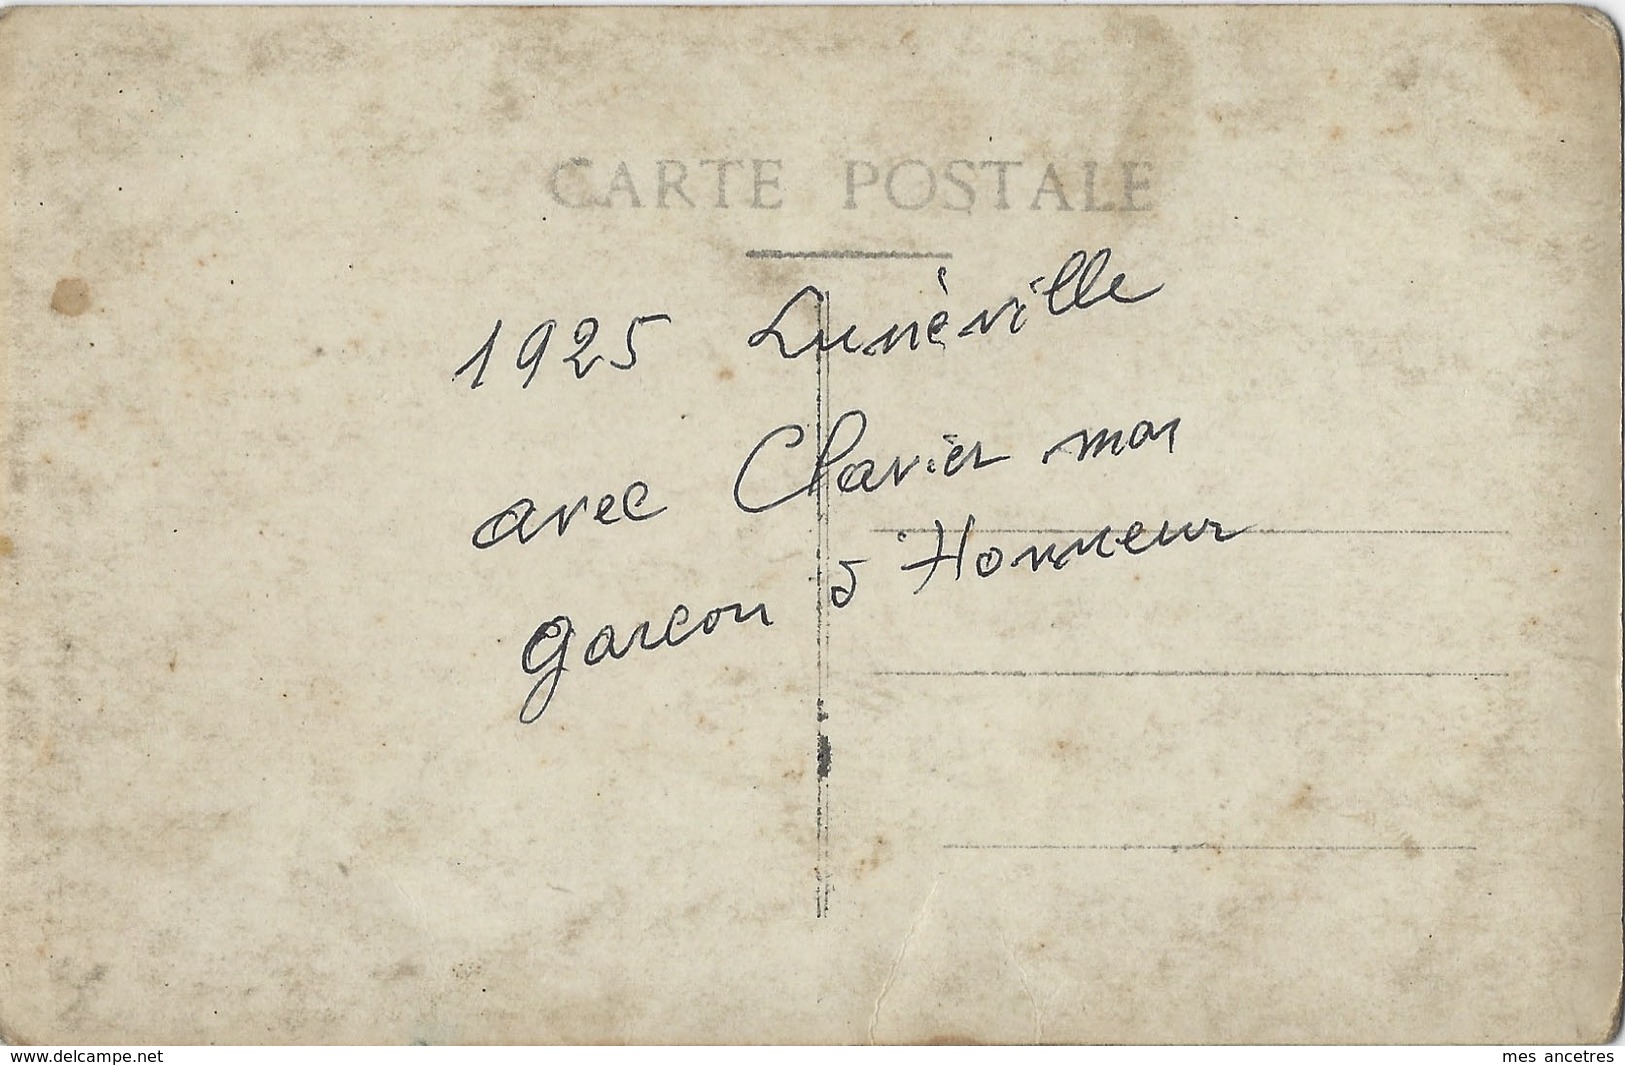 CARTE POSTALE
1925 Lunèville
avec Clavier mon
garcon d'Honneur
www.delcampe.net
mes ancetres